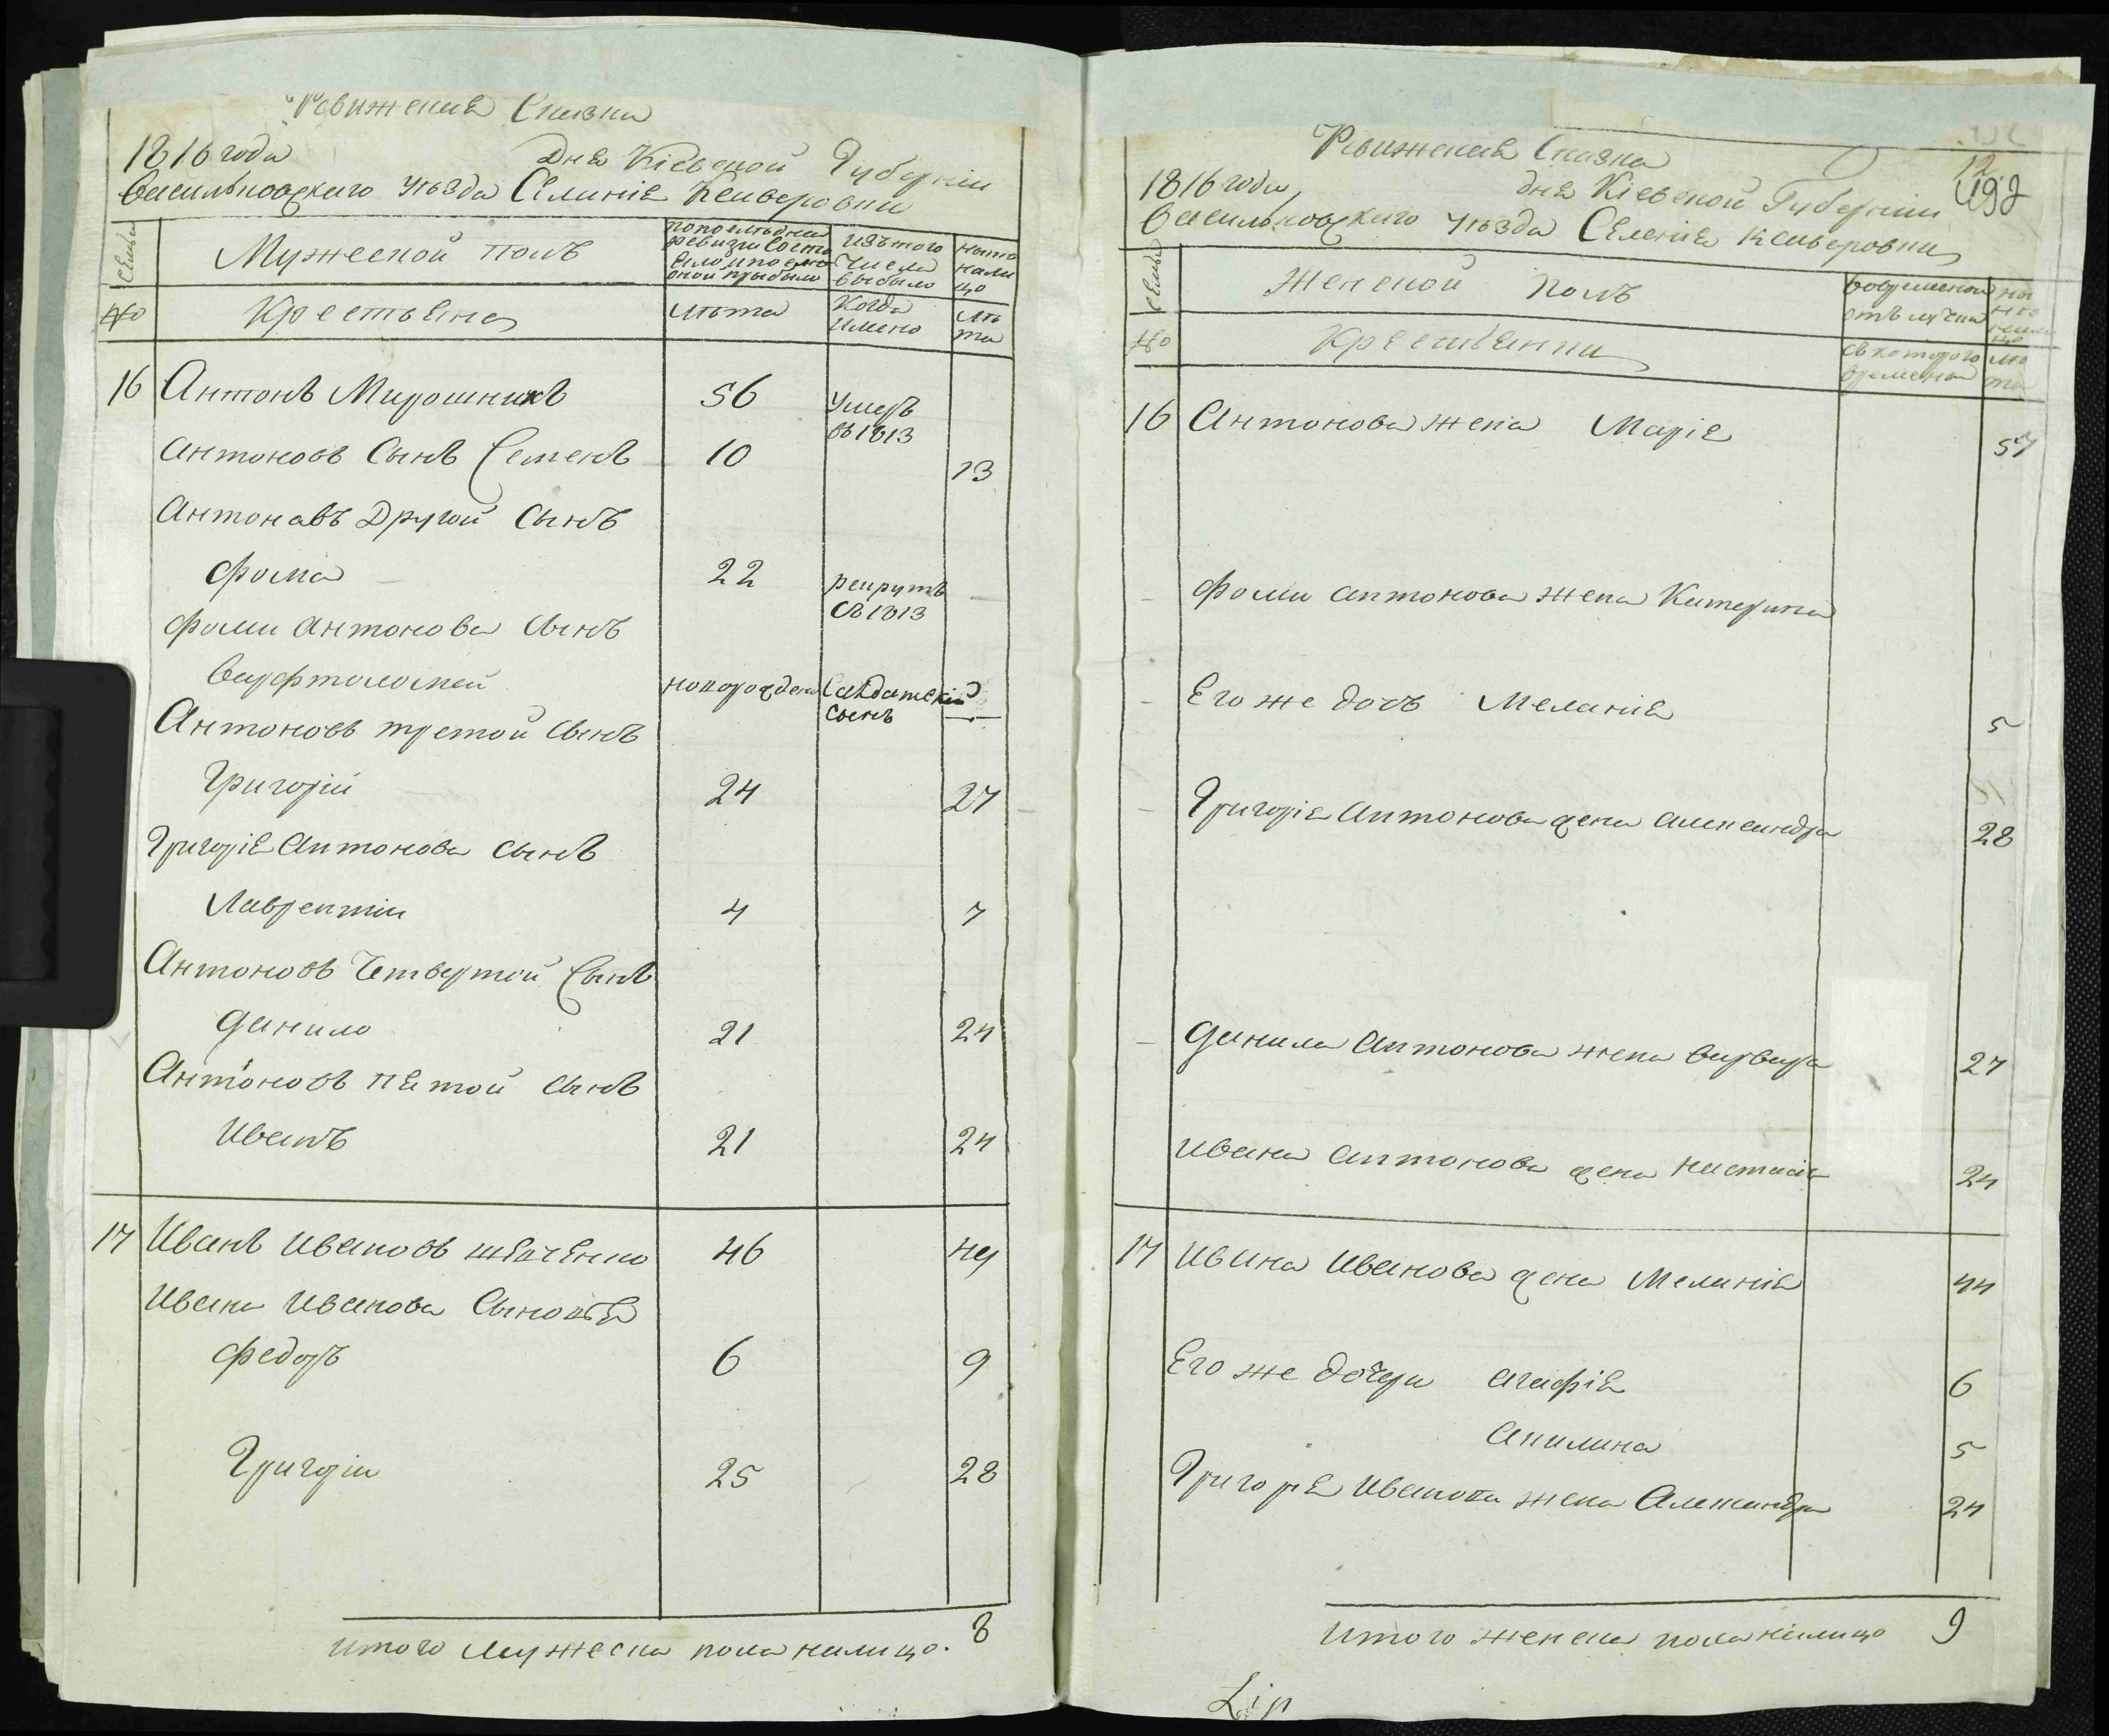 Ревижския Сказка
1816 года
Дня Кіевской Губерніи
Васильковскаго уѣзда Селиніе Ксиверовки
Семьи
Мужеской полъ
по послѣдней ревизіи состояло и после оной прибыло
Изъ того числа выбыло
ныне на лицо
№
Крестьяне
лѣта
Когда имено
лѣта
16 Антонъ Мирошникъ 56 умеръ въ 1813
Антоновъ Сынъ Семенъ 10 13
Антонавъ Другой Сынъ
Фома 22 рекрутъ въ 1813
Фоми Антонова Сынъ
Варфтоломей новорожден Салдатскій сынъ —
Антоновъ третой Сынъ
Григорій 24 27
Григорія Антонова сынъ
Лаврентіи 4 7
Антоновъ Четвертой Сынъ
Данило 21 24
Антоновъ пятой Сынъ
Иванъ 21 24
17 Иванъ Ивановъ Шевченко 46 49
Ивана Иванова Сыновья
Федоръ 6 9
Григоріи 25 28
итого Мужеска пола налицо. 8
Ревижская Сказка
12
198
1816 года,
дня Кіевской Губерніи
Васильковскаго уѣзда Селеніе Ксиверовки
Семьи
Женской Полъ
во временной отлучки
№
Крестьянки
съ которого времени
лѣта
16 Антонова жена Марія 57
Фоми антонова жена Катерина
Его же дочь Меланія 5
Григорія Антонова жена Александра 28
Данила Антонова жена Варвара 27
Ивана Антонова жена Настасія 24
17 Ивана Иванова жена Меланія 44
Его же дочери Агафія 6
Акилина 5
Григорія Иванова жена Александра 24
Итого женска пола налицо 9
Lip